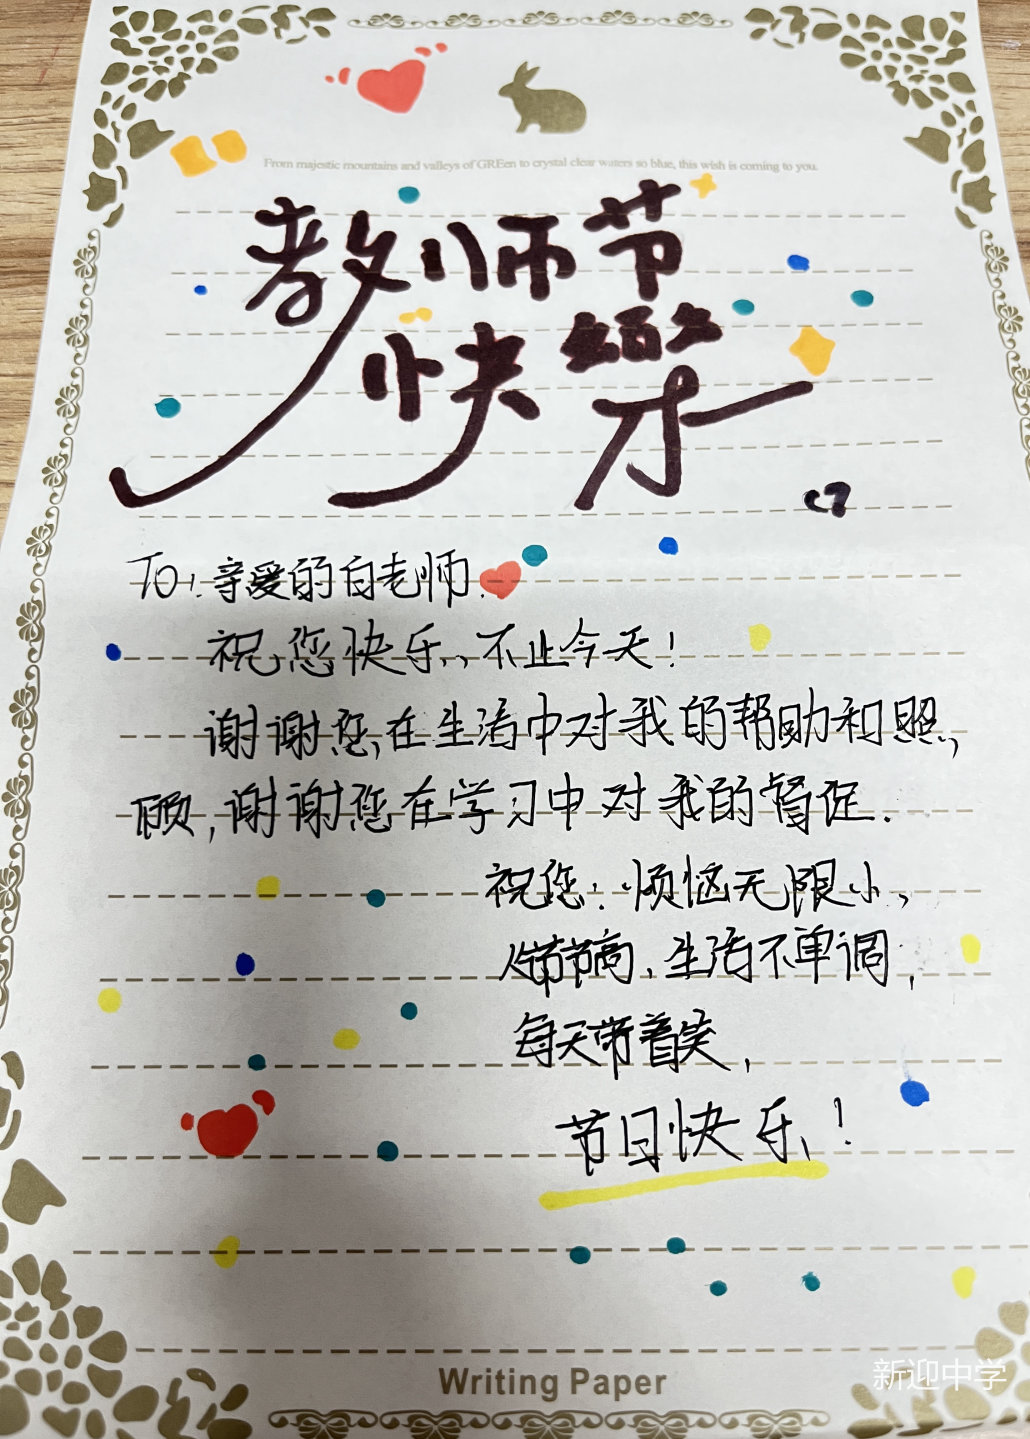 From majestic mountains and valleys of GREen to crystal clear waters so blue, this wish is coming to you.
教师节
快樂
To：亲爱的白老师.
祝您快乐,不止今天！
谢谢您在生活中对我的帮助和照
顾,谢谢您在学习中对我的督促.
祝您：烦恼无限小、
节节高,生活不单调,
每天带着笑,
节日快乐！
Writing Paper
新迎中学